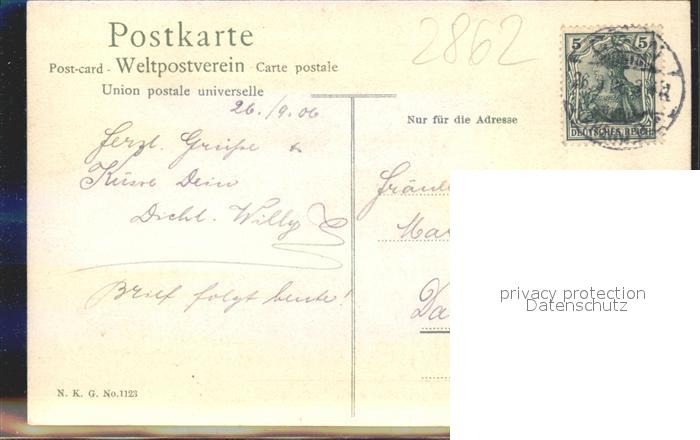 Postkarte
Post-card - Weltpostverein - Carte postale
Union postale universelle
2862
26./9.06
Nur für die Adresse
5 5
DEUTSCHES REICH
herzl. Grüße &
Küsse Dein
Willy
Brief folgt heute!
Fräul
Mar
Da
privacy protection
Datenschutz
N. K. G. No.1123